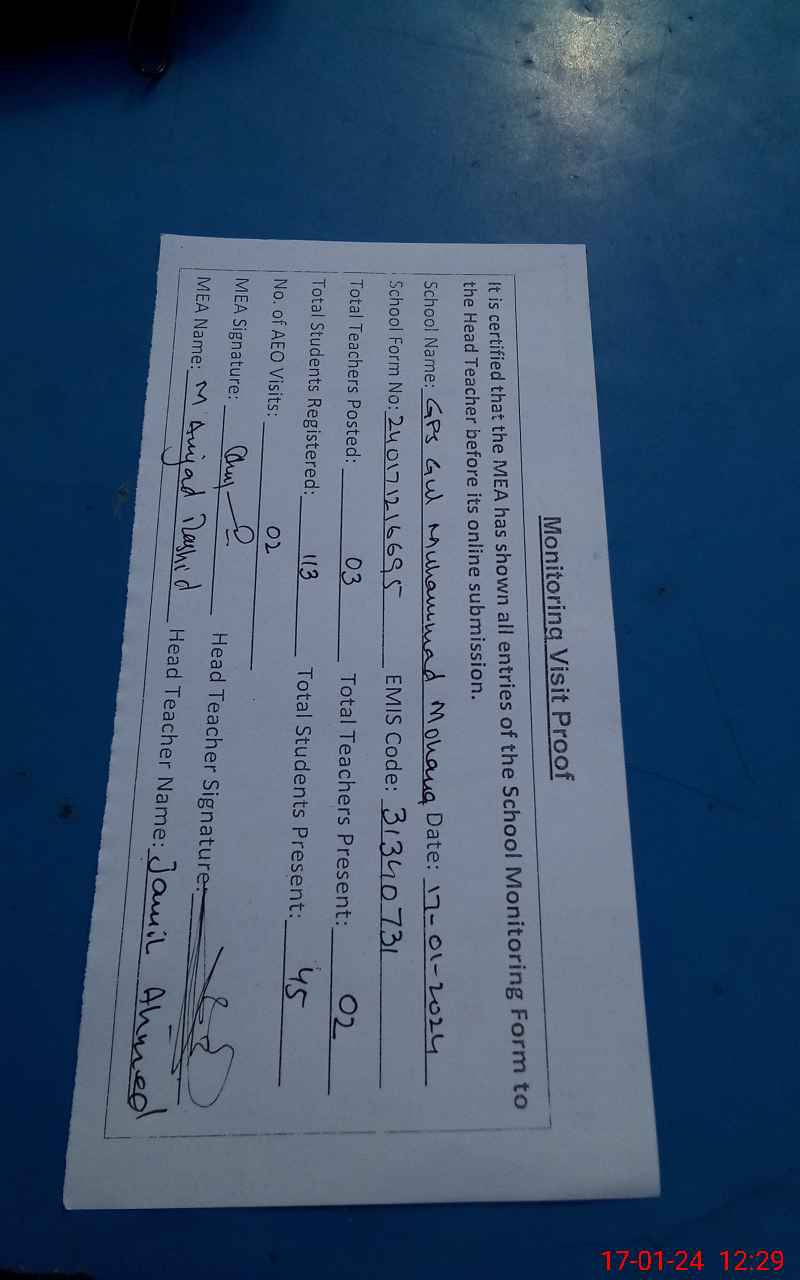 Monitoring Visit Proof
It is certified that the MEA has shown all entries of the School Monitoring Form to
the Head Teacher before its online submission.
School Name: GPS Gul Muhammad Mohana Date: 17-01-2024
School Form No: 240171216695 EMIS Code: 31340731
Total Teachers Posted: 03 Total Teachers Present: 02
Total Students Registered: 113 Total Students Present: 45
No. of AEO Visits: 02
MEA Signature: Head Teacher Signature:
MEA Name: M Amjad Rashid Head Teacher Name: Jamil Ahmed
17-01-24 12:29